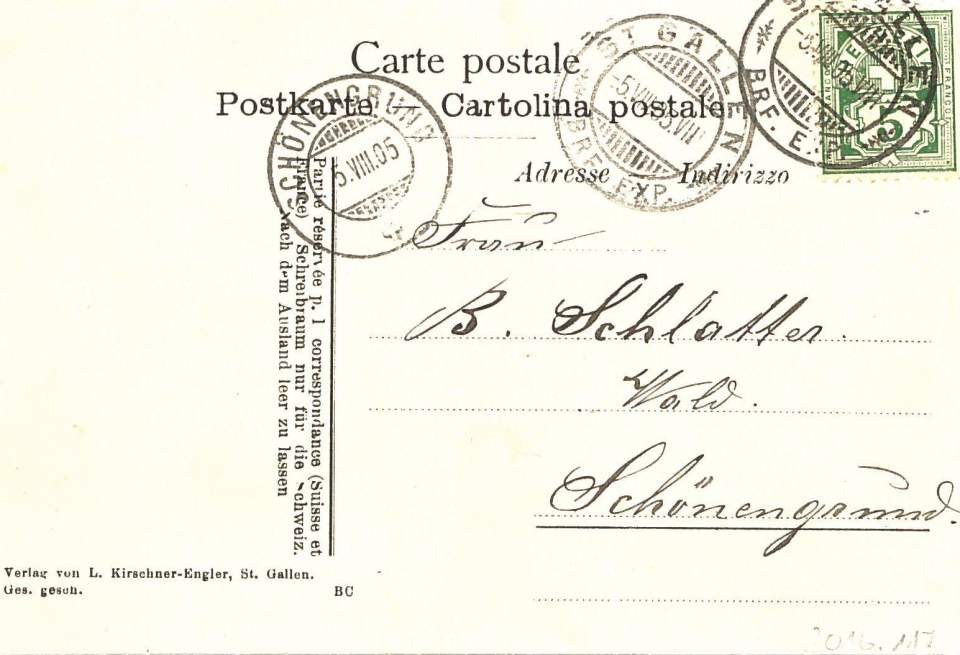 Carte postale
Postkarte — Cartolina postale
Adresse Indirizzo
ST GALLEN
-5.VIII.05.VIII
BRF. EXP.
GALLEN
BRF. EXP.
FRANCO
5
SCHÖNENGRUND
5.VIII.05
Partie réservée p. l correspondance (Suisse et
France) Schreibraum nur für die Schweiz.
Nach dem Ausland leer zu lassen
Frau
B. Schlatter.
Wald.
Schönengrund.
Verlag von L. Kirschner-Engler, St. Gallen.
Ges. gesch.
BC
2016.117